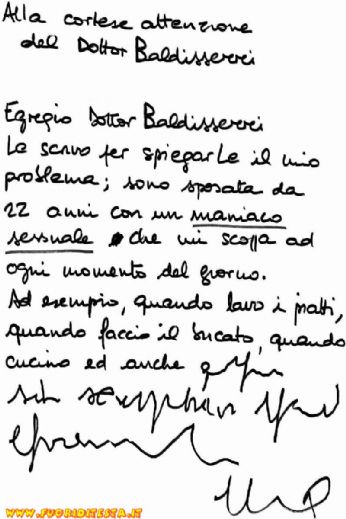 Alla cortese attenzione
del Dottor Baldisserri
Egregio Dottor Baldisserri
Le scrivo per spiegarLe il mio
problema; sono sposata da
22 anni con un maniaco
sessuale che mi scopa ad
ogni momento del giorno.
Ad esempio, quando lavo i piatti,
quando faccio il bucato, quando
cucino ed anche
WWW.FUORIDITESTA.IT